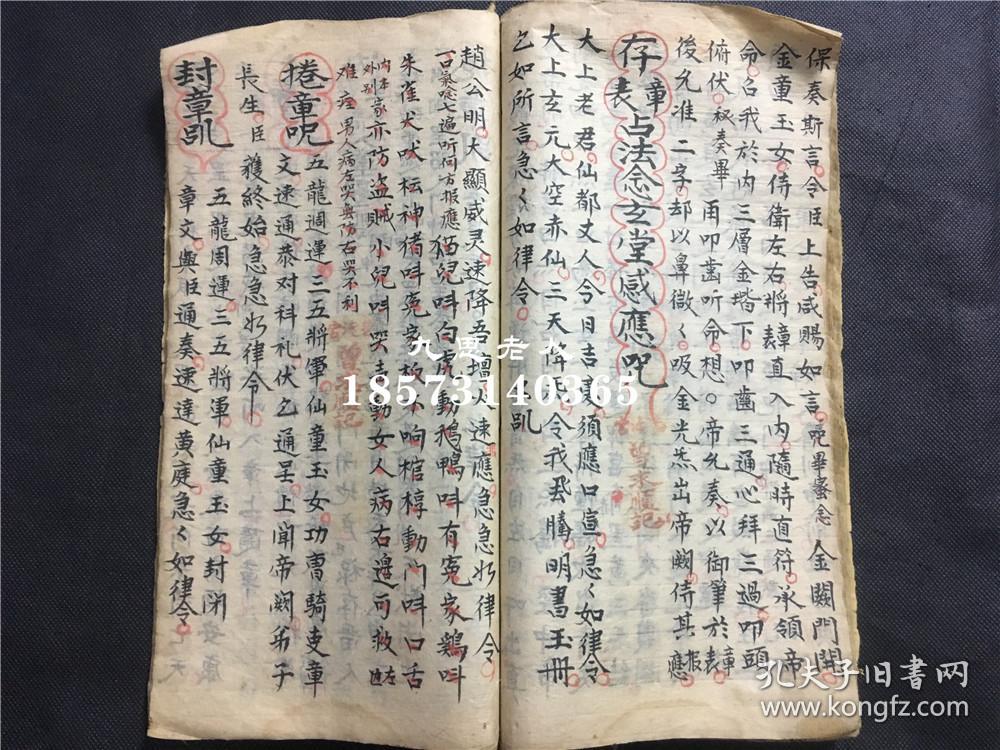 保奏斯言令臣上告咸賜如言 咒畢蜜念 金闕門開
金童玉女侍衛左右將章表直入內隨時直符承領帝
命召我於内三層金堦下叩齒三通心拜三過叩頭
俯伏秘奏畢再叩齒听命想○帝允奏以御筆於章表
後允准二字却以鼻微〻吸金光炁出帝闕侍其報應
存章表占法念玄堂感應咒
大上老君仙都丈人今日吉表須應口宣急〻如律令
大上玄元大空赤仙三天降炁令我飛騰明書玉冊
乞如所言急〻如律令
趙公明大顯威灵速降吾壇火速應急急如律令
一口氣念七遍听何方报應 猫兒呌白虎動鵝鴨呌有寃家鷄呌
朱雀犬吠枟神猪呌寃家板不响棺椁動门呌口舌
内本家外别家亦防盜賊小兒呌哭喪動女人病右邊可救左邊
难痊 男人病左哭無防右哭不利
捲章咒 五龍週運三五將軍仙童玉女功曹騎吏章
文速通恭对科礼伏乞通呈上聞帝阙弟子
長生臣獲終始急急如律令
封章訊 五龍周運三五將軍仙童玉女封闭
章文與臣通奏速達黄庭急〻如律令
九思老人
18573140365
孔夫子旧书网
www.kongfz.com